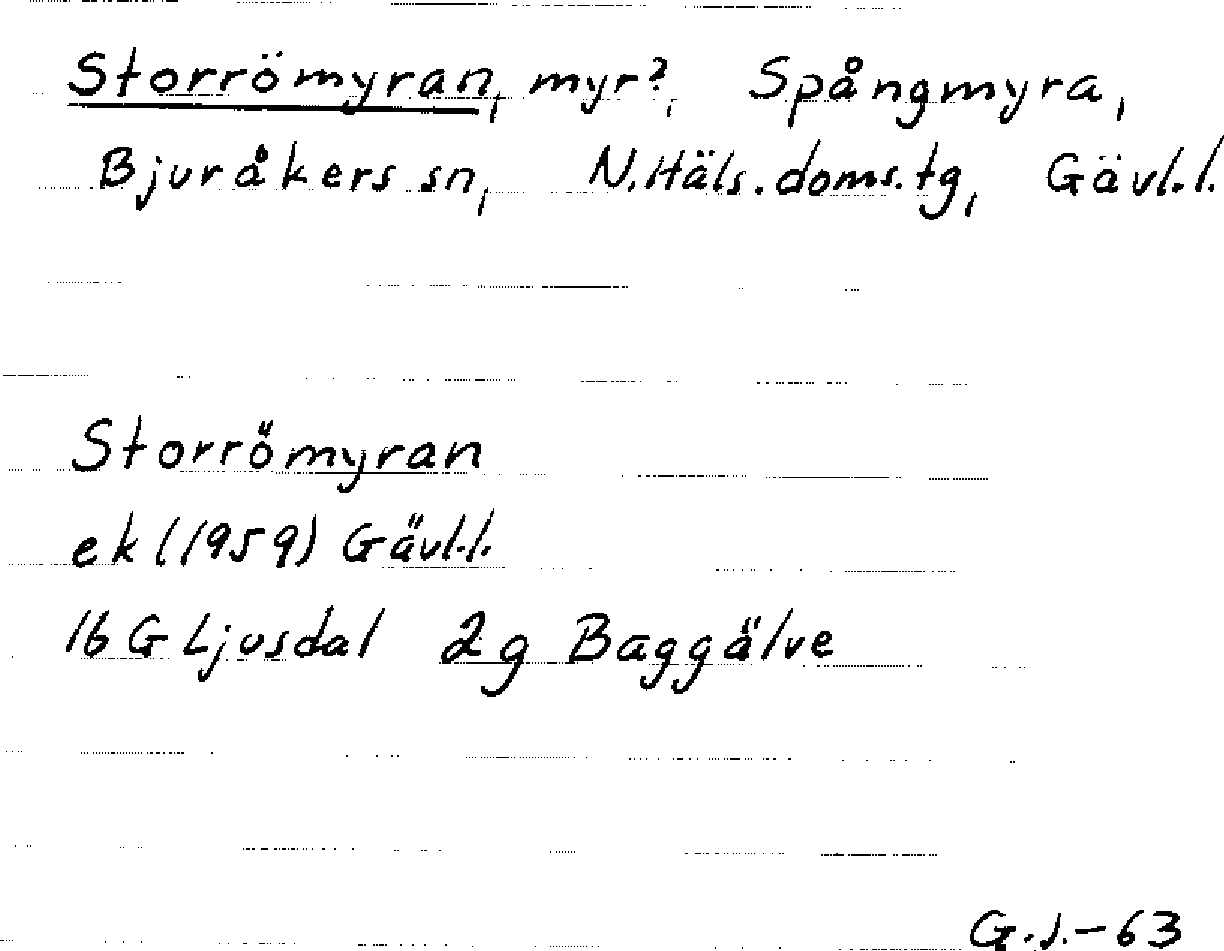 Storrömyran, myr?, Spångmyra,
Bjuråkers sn, N. Häls. doms. tg, Gävl. l.
Storrömyran
ek (1959) Gävl. l.
16 G Ljusdal 2g Baggälve
G. J. - 63